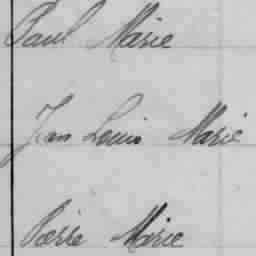 Paul Marie
Jean Louis Marie
Pierre Marie